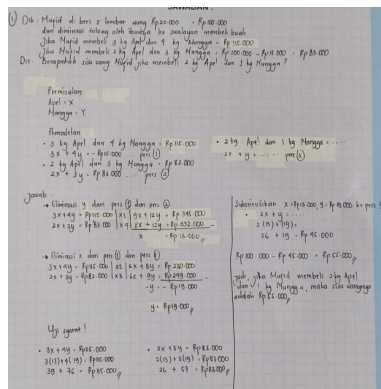 JAWABAN :
① Dik : Mupid di beri 5 lembar uang Rp 20.000 = Rp 100.000
dan diminta tolong oleh ibunya ke swalayan membeli buah
Jika Mupid membeli 3 kg Apel dan 4 kg Mangga = Rp 115.000
Jika Mupid membeli 2 kg Apel dan 3 kg Mangga = Rp 100.000 - Rp 17.000 = Rp 83.000
Dit : Berapakah sisa uang Mupid jika membeli 2 kg Apel dan 1 kg Mangga ?
Permisalan
Apel = X
Mangga = Y
Pemodelan
• 3 kg Apel dan 4 kg Mangga = Rp 115.000
3x + 4y = Rp 115.000 pers ①
• 2 kg Apel dan 3 kg Mangga = Rp 83.000
2x + 3y = Rp 83.000 .... pers ②
• 2 kg Apel dan 1 kg Mangga = ....
2x + y = ...... pers ③
Jawab :
→ Eliminasi y dari pers ① dan pers ②
3x + 4y = Rp 115.000 | x3 | 9x + 12y = Rp 345.000
2x + 3y = Rp 83.000 | x4 | 8x + 12y = Rp 332.000 -
x = Rp 13.000 //
→ Eliminasi x dari pers ① dan pers ②
3x + 4y = Rp 115.000 | x2 | 6x + 8y = Rp 230.000
2x + 3y = Rp 83.000 | x3 | 6x + 9y = Rp 249.000 -
-y = - Rp 19.000
y = Rp 19.000 //
Substitusikan x = Rp 13.000, y = Rp 19.000 ke pers
• 2x + y = ....
2(13) + (19) =
26 + 19 = Rp 45.000
Rp 100.000 - Rp 45.000 = Rp 55.000 //
Jadi, jika Mupid membeli 2 kg Apel
dan 1 kg Mangga, maka sisa uangnya
adalah Rp 55.000 //
Uji syarat !
• 3x + 4y = Rp 115.000
3(13) + 4(19) = Rp 115.000
39 + 76 = Rp 115.000 //
• 2x + 3y = Rp 83.000
2(13) + 3(19) = Rp 83.000
26 + 57 = Rp 83.000 //